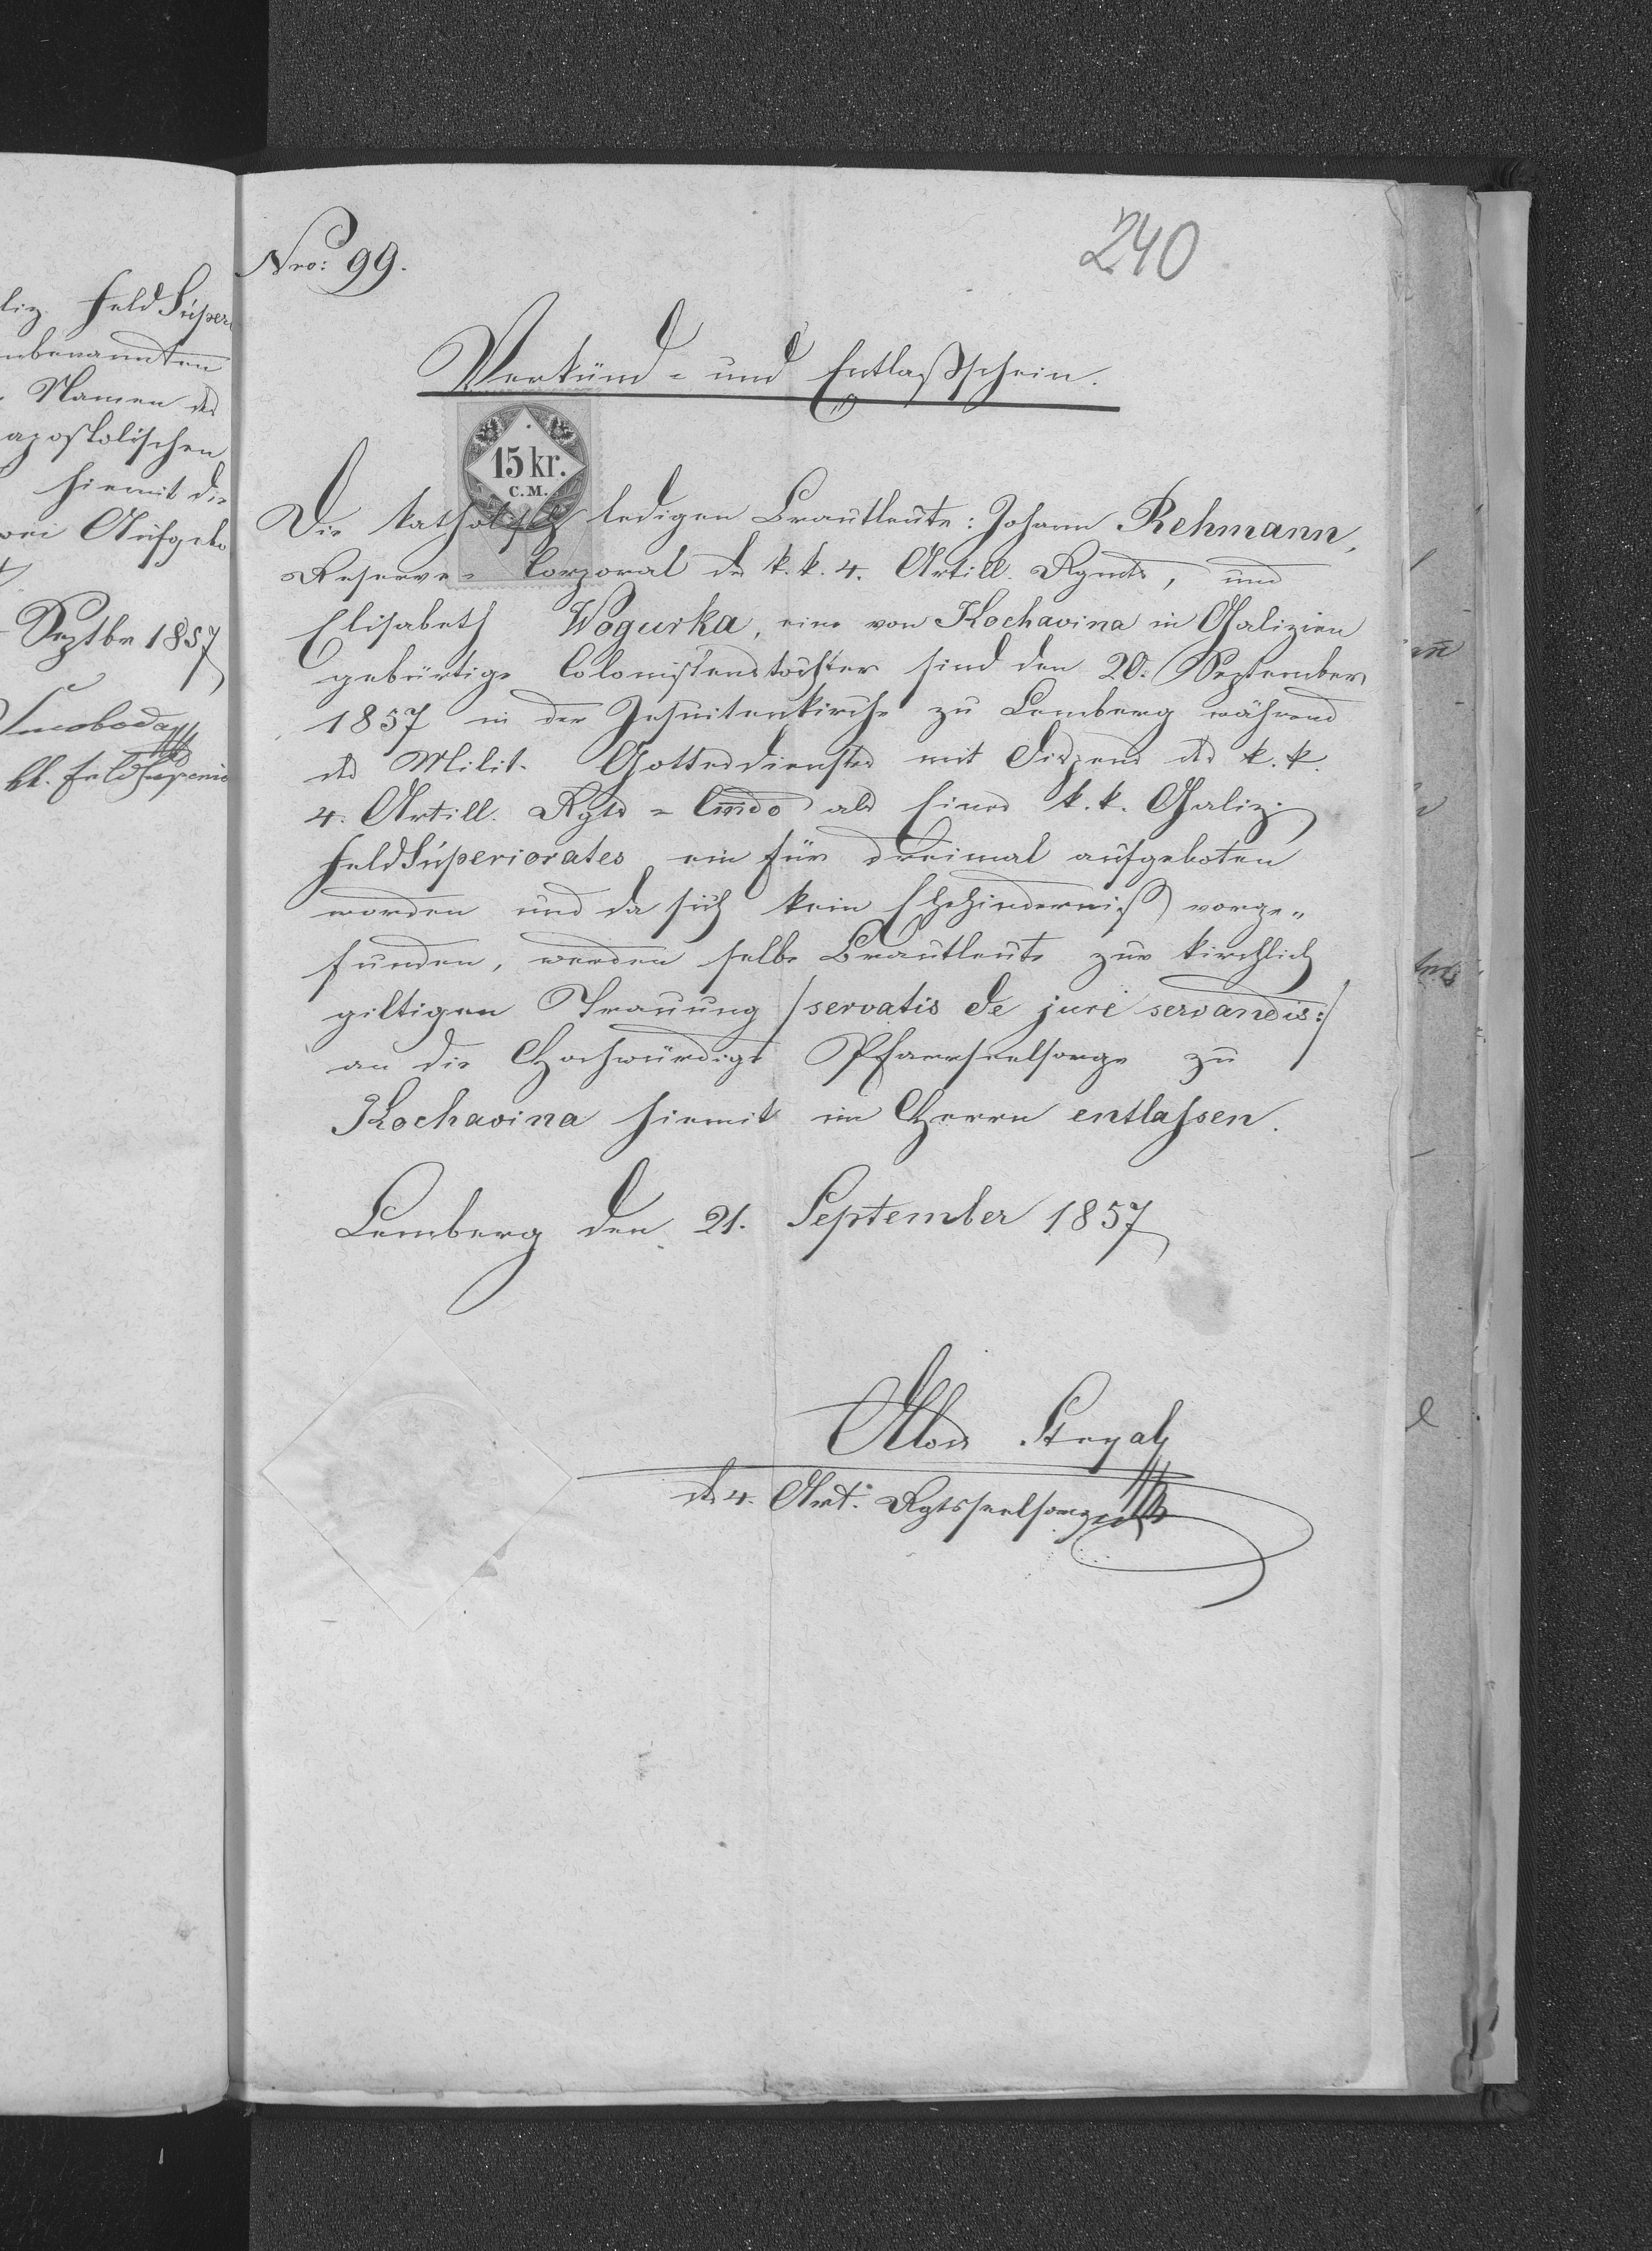 liz. Feld Super
nbenannten
Namen des
apostolischen
hiemit die
drei Aufgebo
Septbr 1857
Swoboda
kk. Feldsuperio
Nro: 99.
240
Verkünd- und Entlaßschein.
15 kr.
C.M.
Die katholisch ledigen Brautleute: Johann Rehmann,
Reserve-Corporal des k. k. 4. Artill. Rgmts, und
Elisabeth Wogurka, eine von Kochavina in Galizien
gebürtige Colonistenstochter sind den 20. September
1857 in der Jesuitenkirche zu Lemberg während
des Milit. Gottesdienstes mit Dispens des k. k.
4. Artill. Rgts = Cmdo als Eines k. k. Galiz.
Feld Superiorates ein für dreimal aufgeboten
worden und da sich kein Ehehinderniß vorge„
funden, werden selbe Brautleute zur kirchlich
giltigen Trauung /servatis de jure servandis:/
an die Hochwürdige Pfarrseelsorge zu
Kochavina hiemit im Herrn entlassen.
Lemberg den 21. September 1857
Alois
des 4. Art. Rgtsseelsorger